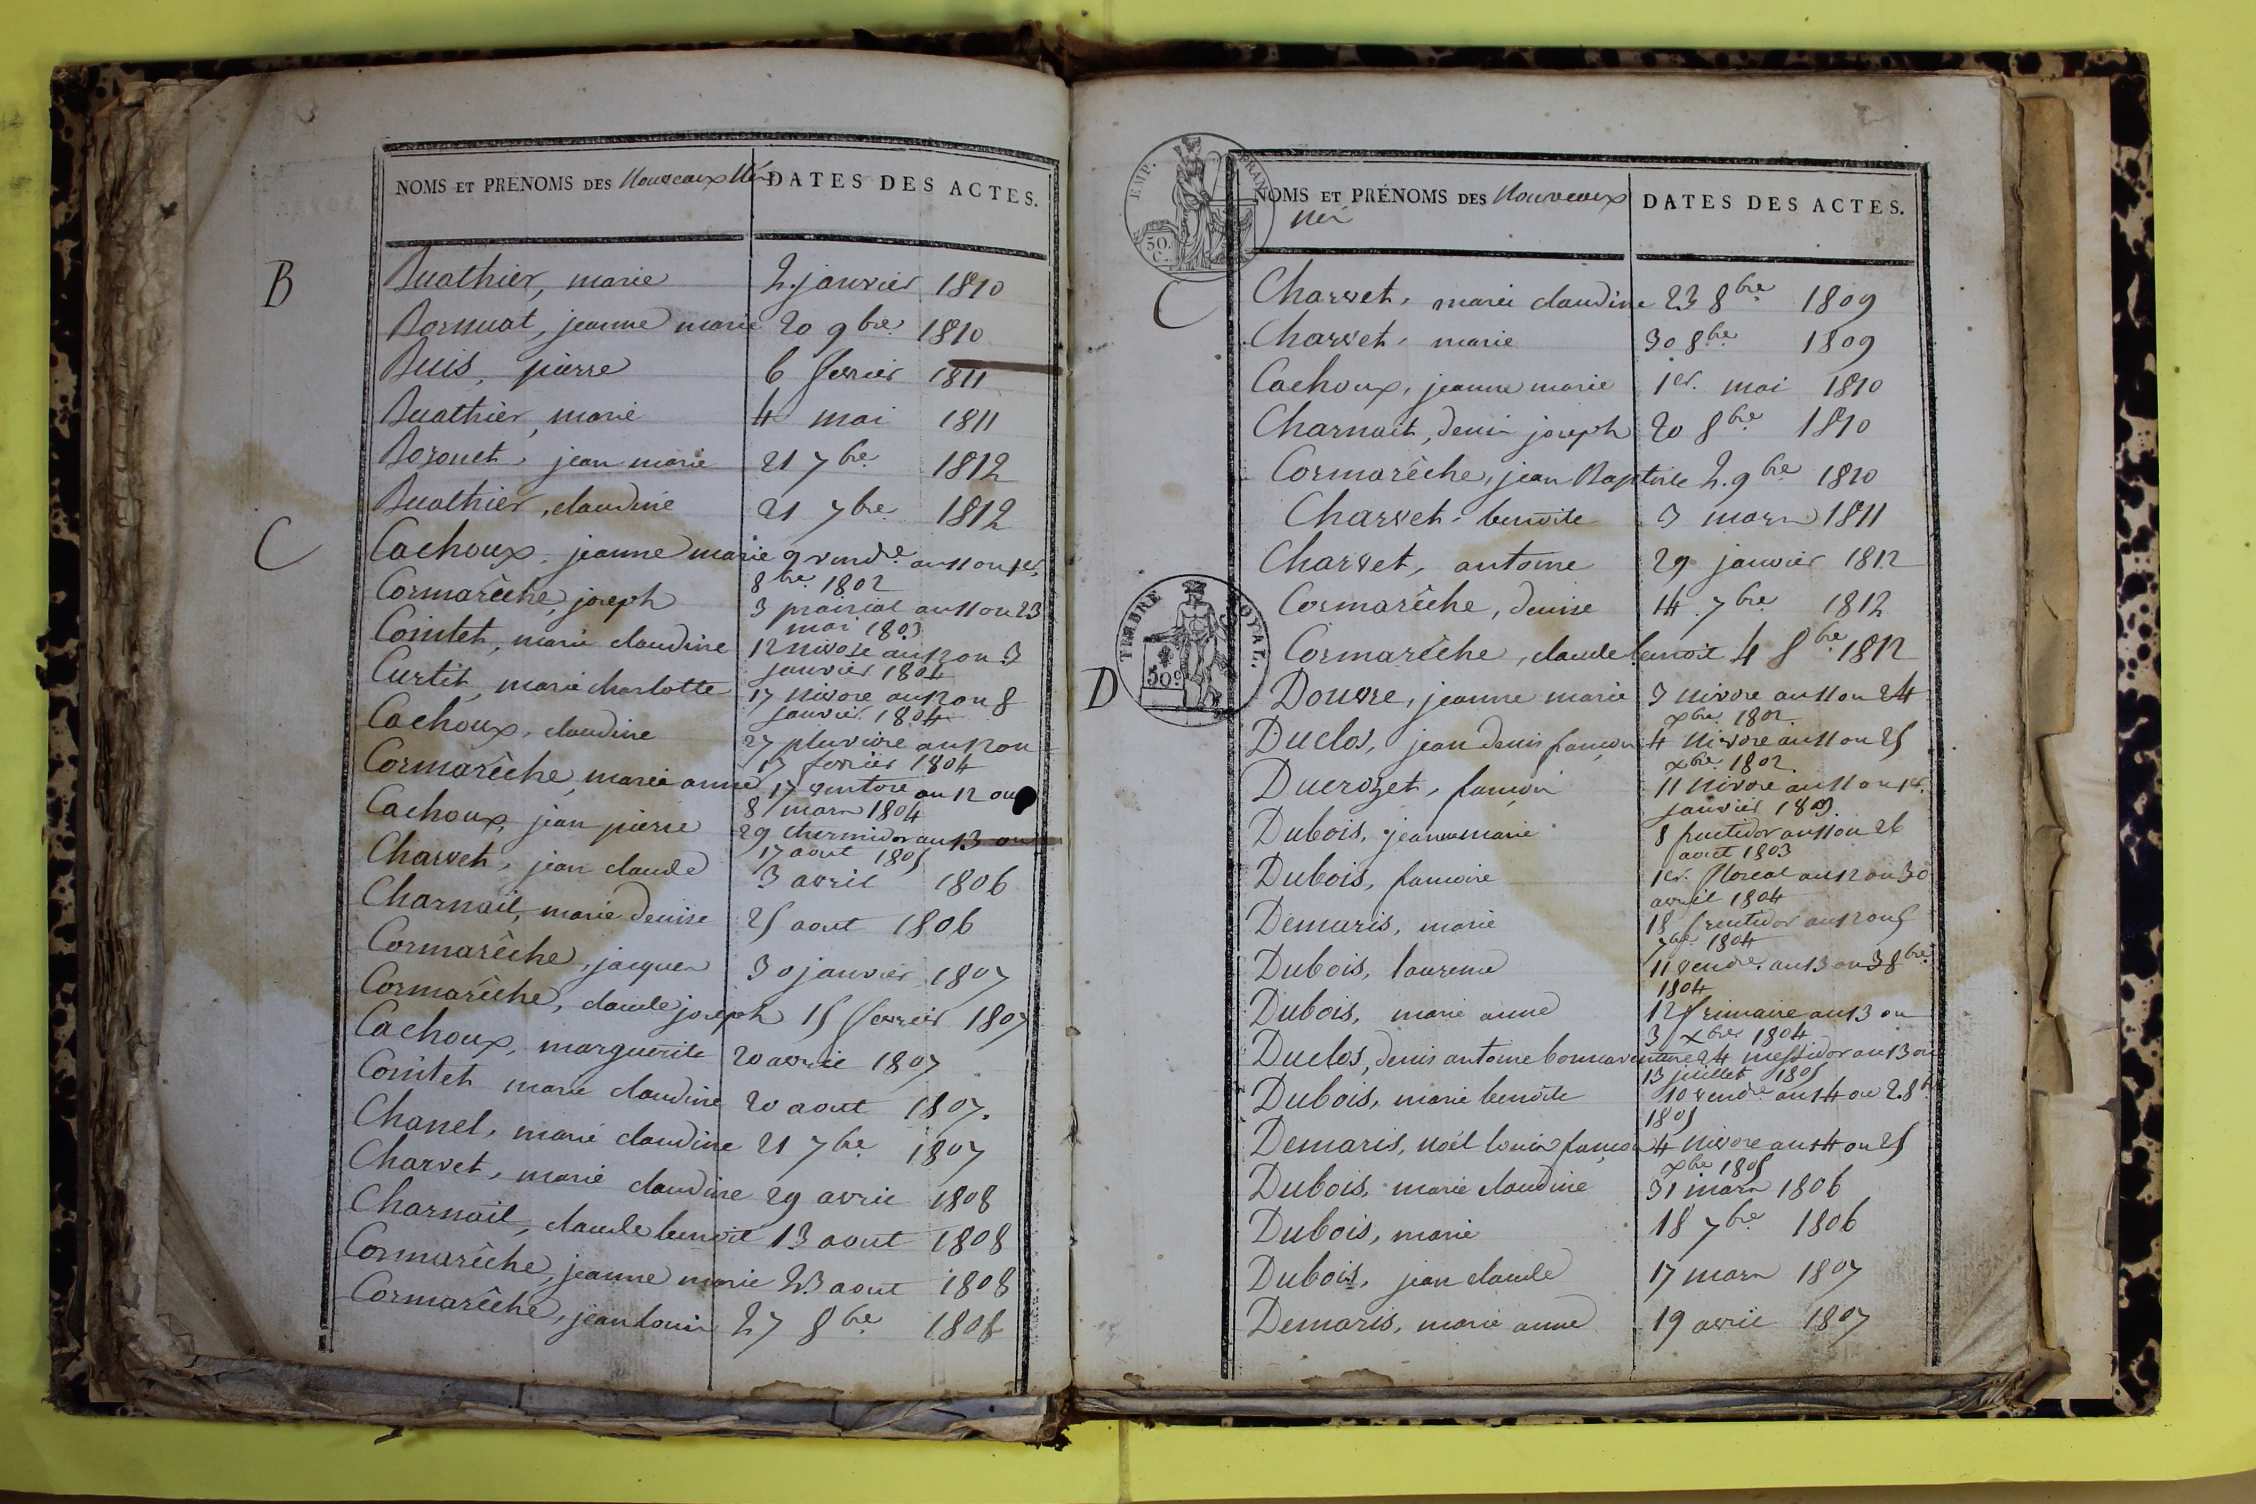 NOMS ET PRÉNOMS DES Nouveaux Nés DATES DES ACTES.
B
Buathier, marie 2 janvier 1810
Bornuat, jeanne marie 20 9bre 1810
Buis, pierre 6 fevrier 1811
Buathier, marie 4 mai 1811
Bozonet, jean marie 21 7bre 1812
Buathier, claudine 21 7bre 1812
C
Cachoux, jeanne marie 9 vendre an 11 ou 1er
8bre 1802
Cormarêche, joseph 3 prairial an 11 ou 23
mai 1803
Cointet, marie claudine 12 nivose an 12 ou 3
janvier 1804
Curtit, marie charlotte 17 nivose an 12 ou 8
janvier 1804
Cachoux, claudine 27 pluviose an 12 ou
17 fevrier 1804
Cormarêche, marie anne 17 ventose an 12 ou
8 mars 1804
Cachoux, jean pierre 29 thermidor an 13 ou
17 aout 1805
Charvet, jean claude 3 avril 1806
Charnait, marie denise 25 aout 1806
Cormarêche, jacques 30 janvier 1807
Cormarêche, claude joseph 15 fevrier 1807
Cachoux, marguerite 20 avril 1807
Cointet marie claudine 20 aout 1807.
Chanel, marie claudine 21 7bre 1807
Charvet, marie claudine 29 avril 1808
Charnait, claude benoit 13 aout 1808
Cormarêche, jeanne marie 23 aout 1808
Cormarêche, jean louis 27 8bre 1808
EMP. FRAN
50.
C.
NOMS ET PRÉNOMS DES Nouveaux DATES DES ACTES.
Nés
C
Charvet, marie claudine 23 8bre 1809
Charvet, marie 30 8bre 1809
Cachoux, jeanne marie 1er. mai 1810
Charnait, denis joseph 20 8bre 1810
Cormarêche, jean Baptiste 2. 9bre 1810
Charvet, benoite 3 mars 1811
Charvet, antoine 29 janvier 1812
Cormarêche, denise 14 7bre 1812
Cormarêche, claude benoit 4 8bre 1812
TIMBRE ROYAL.
50c
D
Douvre, jeanne marie 3 nivose an 11 ou 24
xbre 1802
Duclos, jean denis françois 4 nivose an 11 ou 25
xbre 1802
Ducrozet, françois 11 nivose an 11 ou 1er.
janvier 1803.
Dubois, jeanne marie 8 fructidor an 11 ou 26
aout 1803
Dubois, francoise 1er. floreal an 12 ou 30
avril 1804
Demaris, marie 18 fructidor an 12 ou 5
7bre 1804
Dubois, laurence 11 vendre. an 13 ou 3 8bre
1804
Dubois, marie anne 12 frimaire an 13 ou
3 xbre 1804
Duclos, denis antoine bonnaventure 24 messidor an 13 ou
13 juillet 1805
Dubois, marie benoite 10 vendre an 14 ou 2. 8b
1805
Demaris, noël louis françois 4 nivose an 14 ou 25
xbre 1805
Dubois, marie claudine 31 mars 1806
Dubois, marie 18 7bre 1806
Dubois, jean claude 17 mars 1807
Demaris, marie anne 19 avril 1807